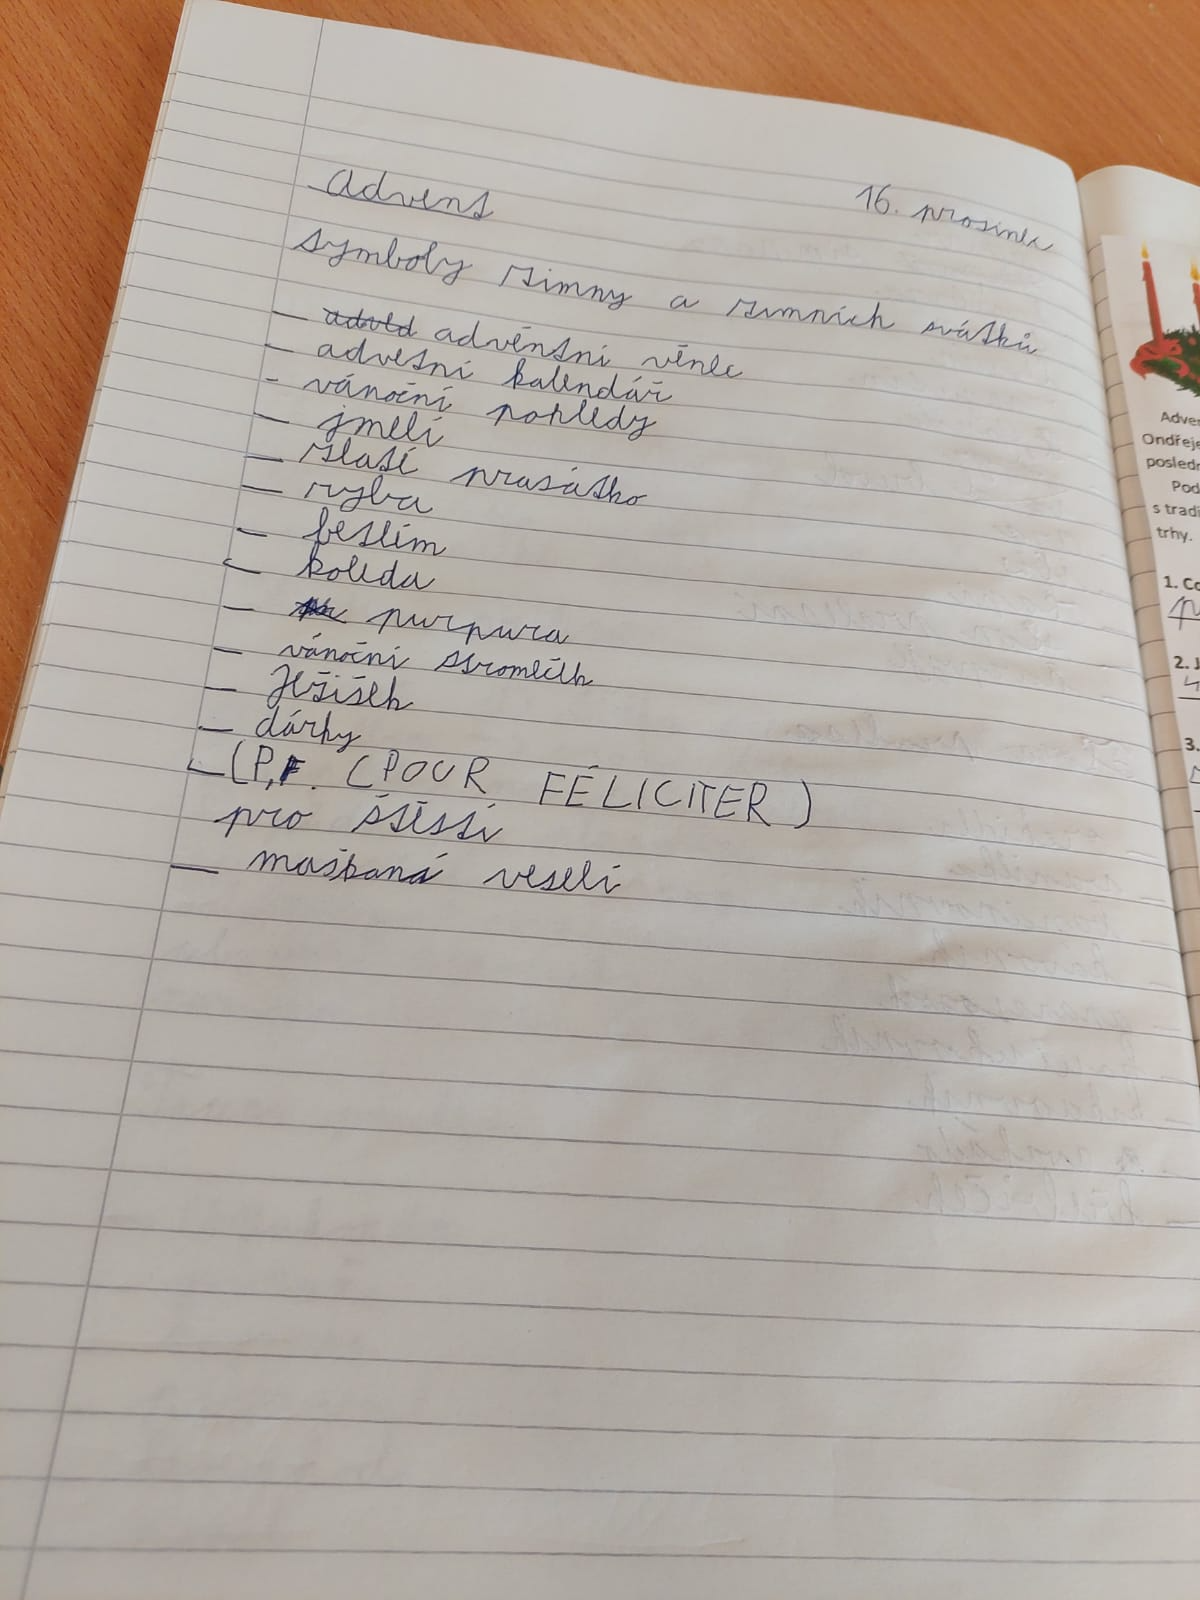 Advent
16. prosinec
Symboly zimny a zimních svátků
— advěntní věnec
— advetní kalendář
- vánoční pohledy
— jmelí
— zlaté prasátko
— ryba
— betlém
— koleda
— purpura
— vánoční stromeček
— Ježíšek
— dárky
— (P.F. (POUR FÉLICITER)
pro štěstí
— maškarní veselí
Adven
Ondřeje
posledn
Pod
s tradi
trhy.
1. Co
2. J
3.